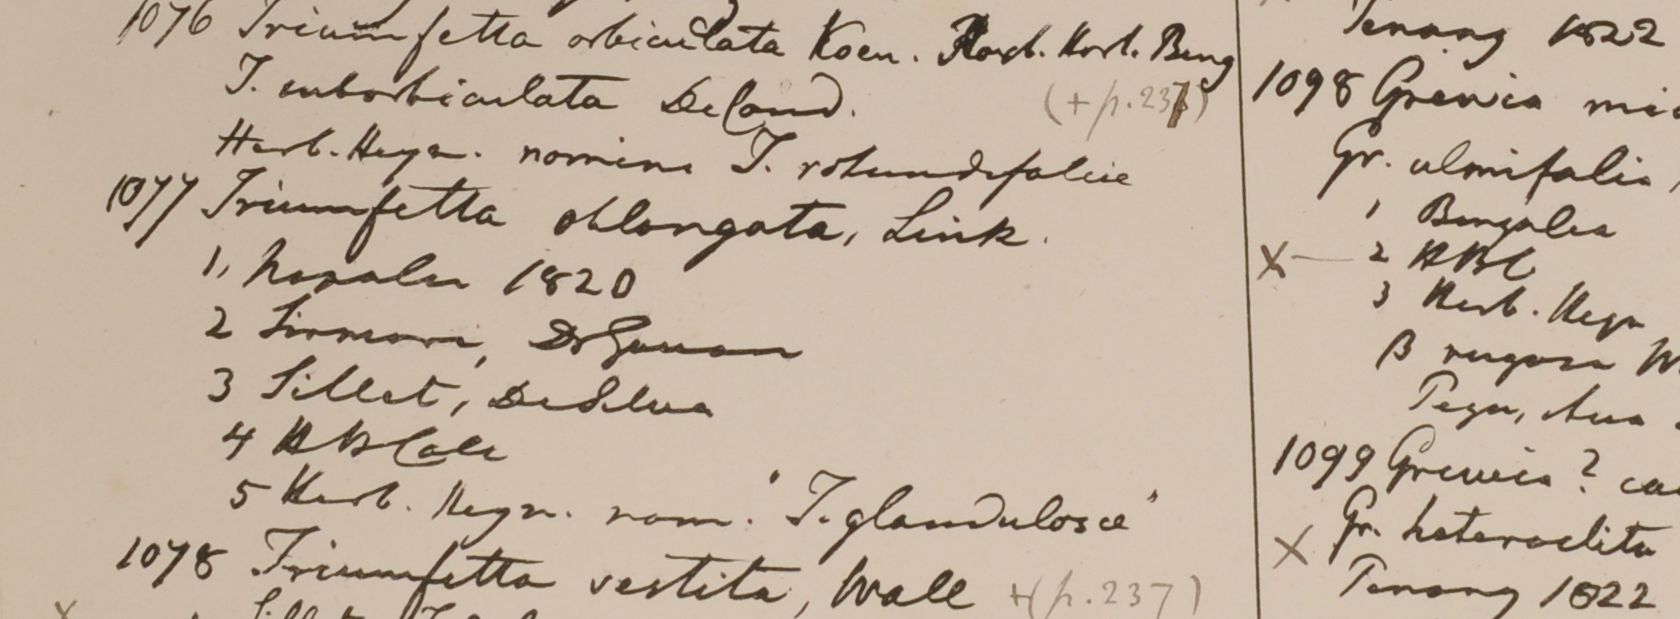 1076 Triumfetta orbiculata Koen. Herb. Beng
T. suborbiculata DeCand. (+ p. 237)
Herb. Heyn. nomine T. rotundifoliae
1077 Triumfetta oblongata, Link.
1, Napalia 1820
2 Sirmore, Dr Govan
3 Sillet, De Silva
4 HBCalc
5 Herb. Heyn. nom. "T. glandulosae"
1078 Triumfetta vestita, Wall + (p. 237)
x 1 Sillet
Penang 1822
1098 Grewia
Gr. ulmifolia
1 Bengalia
x — 2 HBC
3 Herb. Heyn
β rugosa W
Pegu, Ava
1099 Grewia? ca
x Gr. heteroclita
Penang 1822